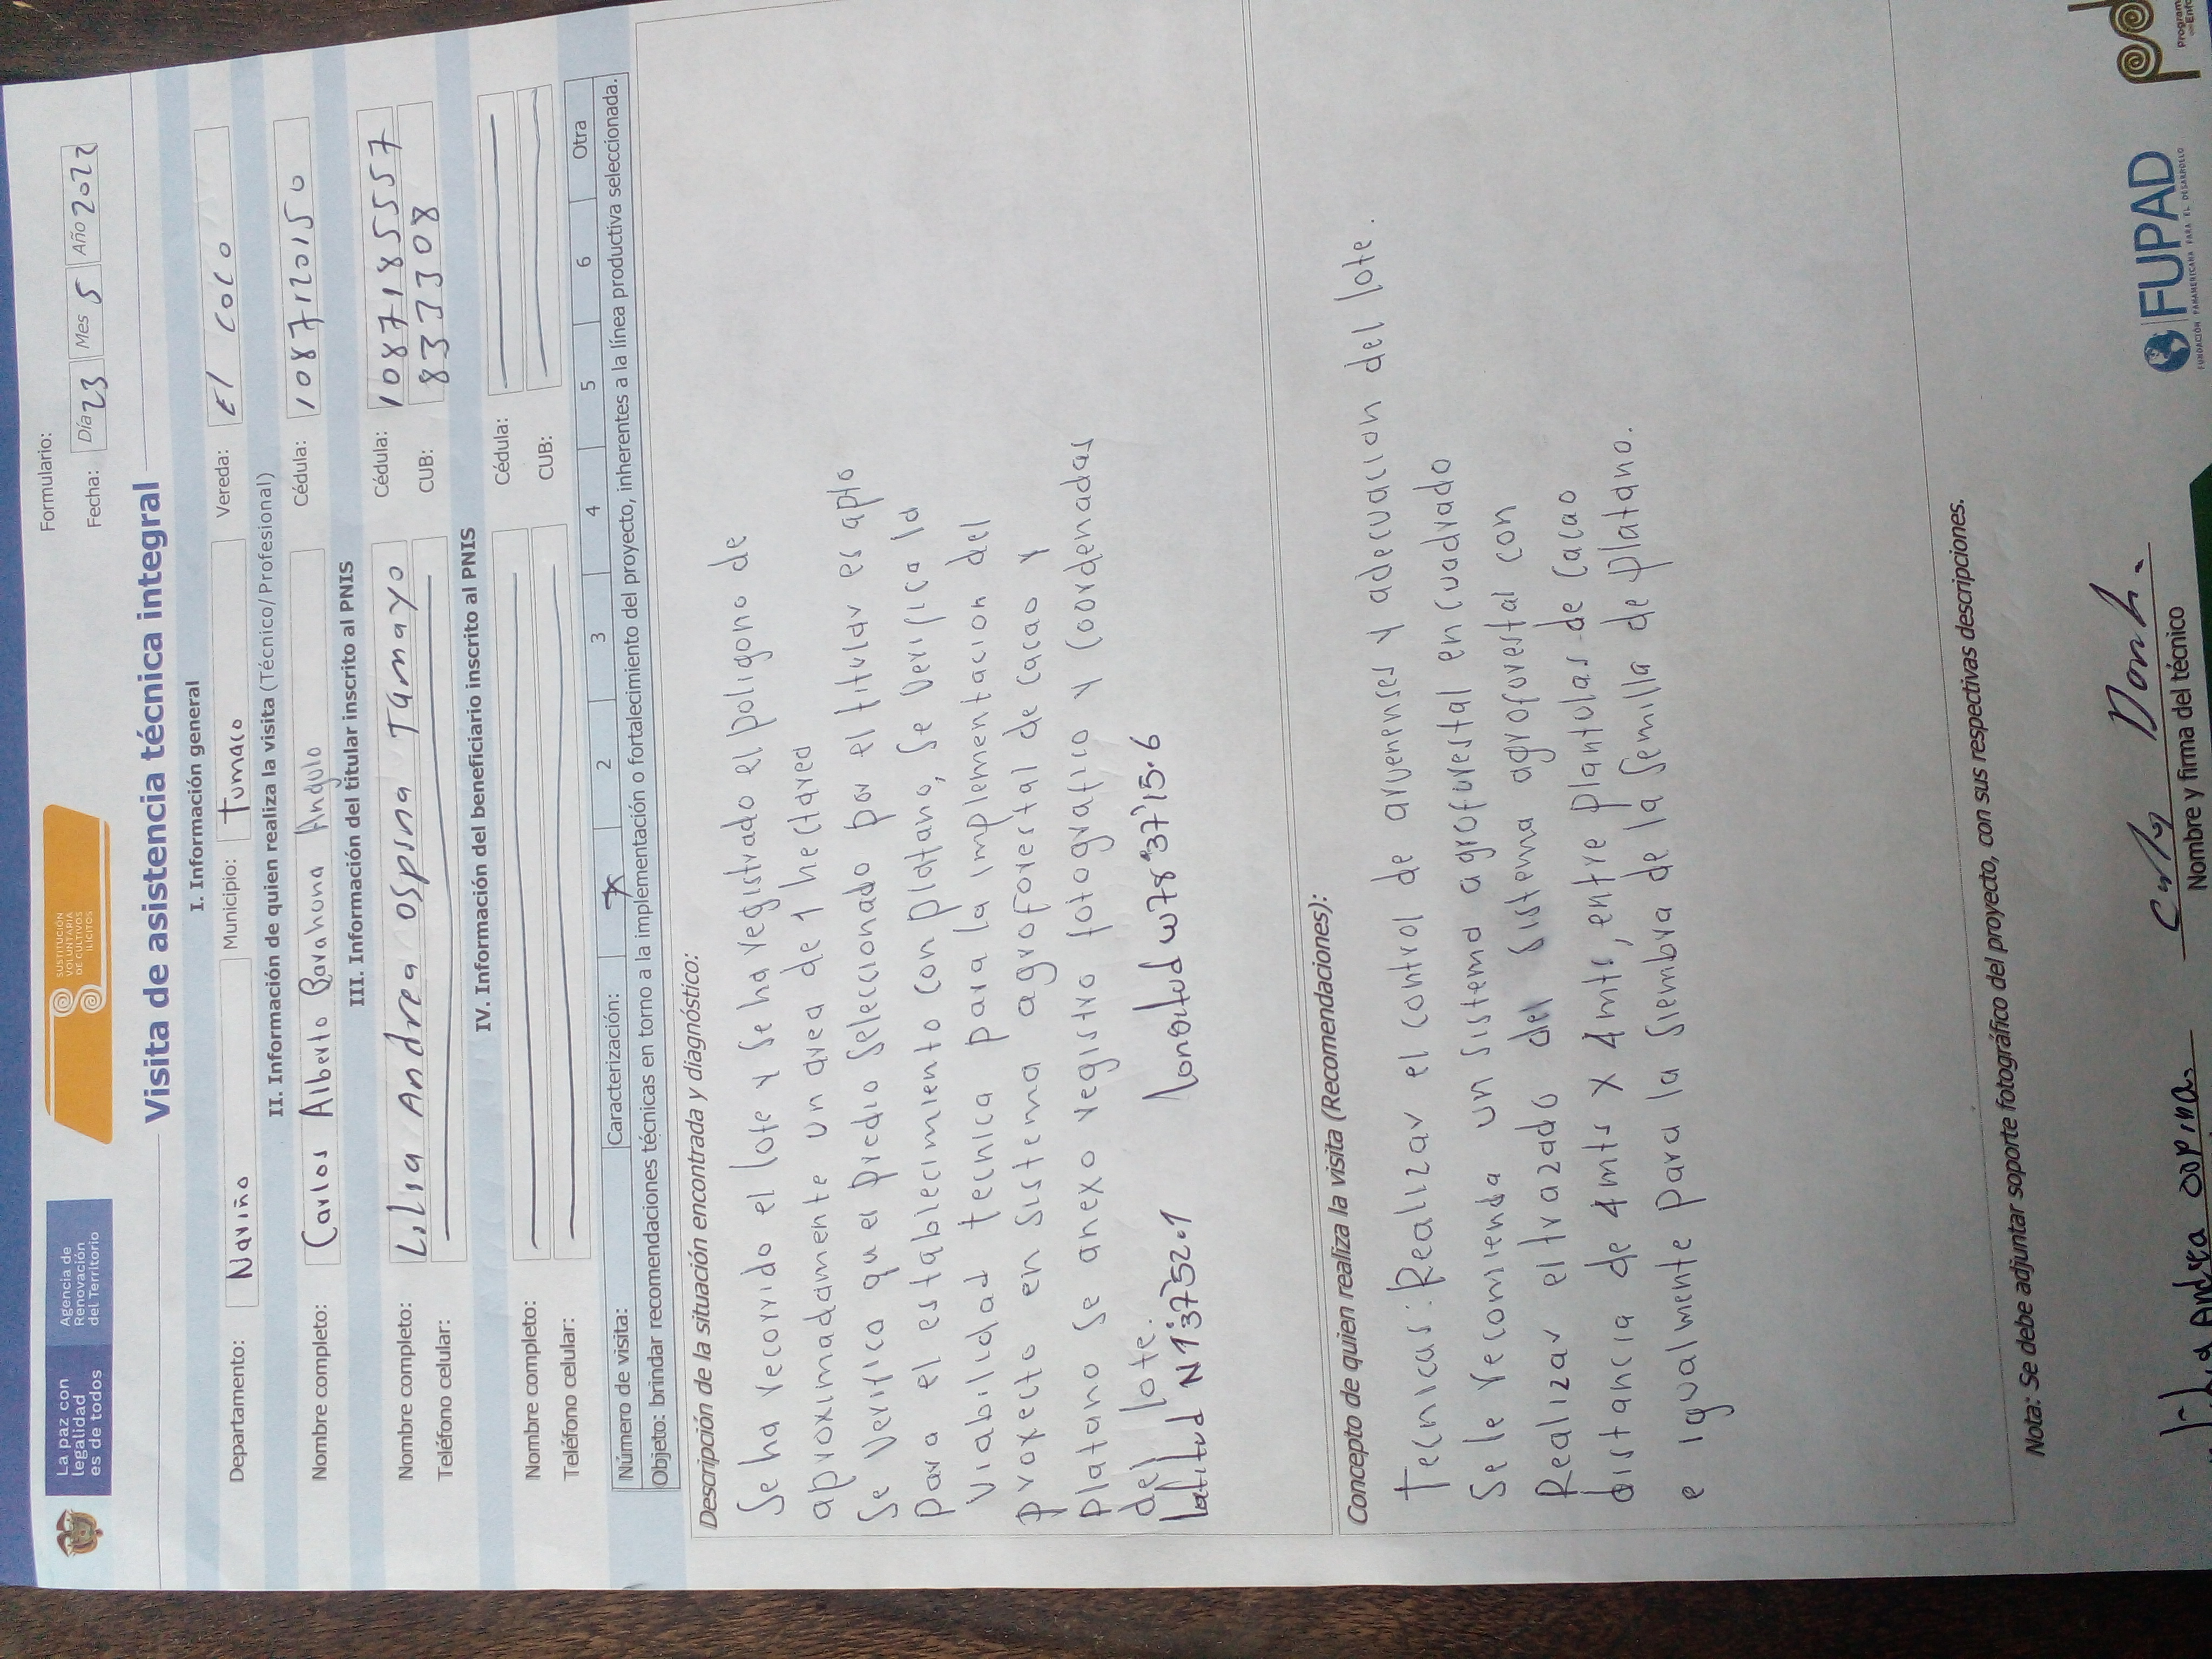 La paz con
legalidad
es de todos
Agencia de
Renovación
del Territorio
SUSTITUCIÓN
VOLUNTARIA
DE CULTIVOS
ILÍCITOS
Formulario:
Fecha: Día 23 Mes 5 Año 2022
Visita de asistencia técnica integral
I. Información general
Departamento: Nariño Municipio: tumaco Vereda: El coco
II. Información de quien realiza la visita (Técnico/Profesional)
Nombre completo: Carlos Alberto Barahona Angulo Cédula: 1087120150
III. Información del titular inscrito al PNIS
Nombre completo: Lilia Andrea ospina Tamayo Cédula: 1087185557
Teléfono celular: CUB: 8333308
IV. Información del beneficiario inscrito al PNIS
Nombre completo: Cédula:
Teléfono celular: CUB:
Número de visita: Caracterización: X 2 3 4 5 6 Otra
Objeto: brindar recomendaciones técnicas en torno a la implementación o fortalecimiento del proyecto, inherentes a la línea productiva seleccionada.
Descripción de la situación encontrada y diagnóstico:
Se ha recorrido el lote y se ha registrado el poligono de
aproximadamente un area de 1 hectarea
Se verifica qu el predio seleccionado por el titular es apto
para el establecimiento con platano, se verifica la
viabilidad tecnica para la implementacion del
proxecto en sistema agroforestal de cacao y
platano se anexo registro fotografico y coordenadas
del lote.
latitud N1°37'52.1 longitud w78°37'15.6
Concepto de quien realiza la visita (Recomendaciones):
Tecnicas: Realizar el control de arvenses y adecuacion del lote.
Se le recomienda un sistema agroforestal en cuadrado
Realizar el trazado del sistema agroforestal con
distancia de 4mts x 4mts, entre plantulas de cacao
e igualmente para la siembra de la semilla de platano.
Nota: Se debe adjuntar soporte fotográfico del proyecto, con sus respectivas descripciones.
Andrea ospina
Nombre y firma del técnico
FUPAD
FUNDACIÓN PANAMERICANA PARA EL DESARROLLO